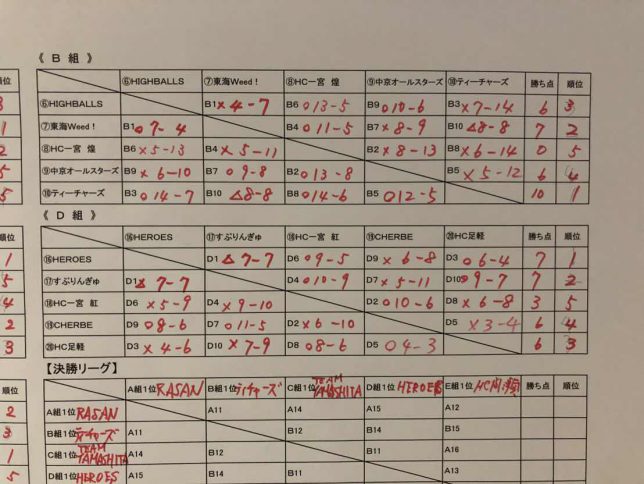 《 B 組 》
順位 ⑥HIGHBALLS ⑦東海Weed！ ⑧HC一宮 煌 ⑨中京オールスターズ ⑩ティーチャーズ 勝ち点 順位
3 ⑥HIGHBALLS B1 × 4-7 B6 ○ 13-5 B9 ○ 10-6 B3 × 7-14 6 3
1 ⑦東海Weed！ B1 ○ 7-4 B4 ○ 11-5 B7 × 8-9 B10 △ 8-8 7 2
2 ⑧HC一宮 煌 B6 × 5-13 B4 × 5-11 B2 × 8-13 B8 × 6-14 0 5
5 ⑨中京オールスターズ B9 × 6-10 B7 ○ 9-8 B2 ○ 13-8 B5 × 5-12 6 4
5 ⑩ティーチャーズ B3 ○ 14-7 B10 △ 8-8 B8 ○ 14-6 B5 ○ 12-5 10 1
《 D 組 》
順位 ⑯HEROES ⑰すぷりんぎゅ ⑱HC一宮 紅 ⑲CHERBE ⑳HC足軽 勝ち点 順位
1 ⑯HEROES D1 △ 7-7 D6 ○ 9-5 D9 × 6-8 D3 ○ 6-4 7 1
5 ⑰すぷりんぎゅ D1 △ 7-7 D4 ○ 10-9 D7 × 5-11 D10 ○ 9-7 7 2
4 ⑱HC一宮 紅 D6 × 5-9 D4 × 9-10 D2 ○ 10-6 D8 × 6-8 3 5
2 ⑲CHERBE D9 ○ 8-6 D7 ○ 11-5 D2 × 6-10 D5 × 3-4 6 4
3 ⑳HC足軽 D3 × 4-6 D10 × 7-9 D8 ○ 8-6 D5 ○ 4-3 6 3
【決勝リーグ】
順位 A組1位 RASAN B組1位 ティチャーズ C組1位 TEAM YAMASHITA D組1位 HEROES E組1位 勝ち点 順位
2 A組1位 RASAN A11 A14 A15 A12
3 B組1位 ティチャーズ A11 B12 B14 B15
1 C組1位 TEAM YAMASHITA A14 B12 B11 A16
5 D組1位 HEROES A15 B14 B11 A13